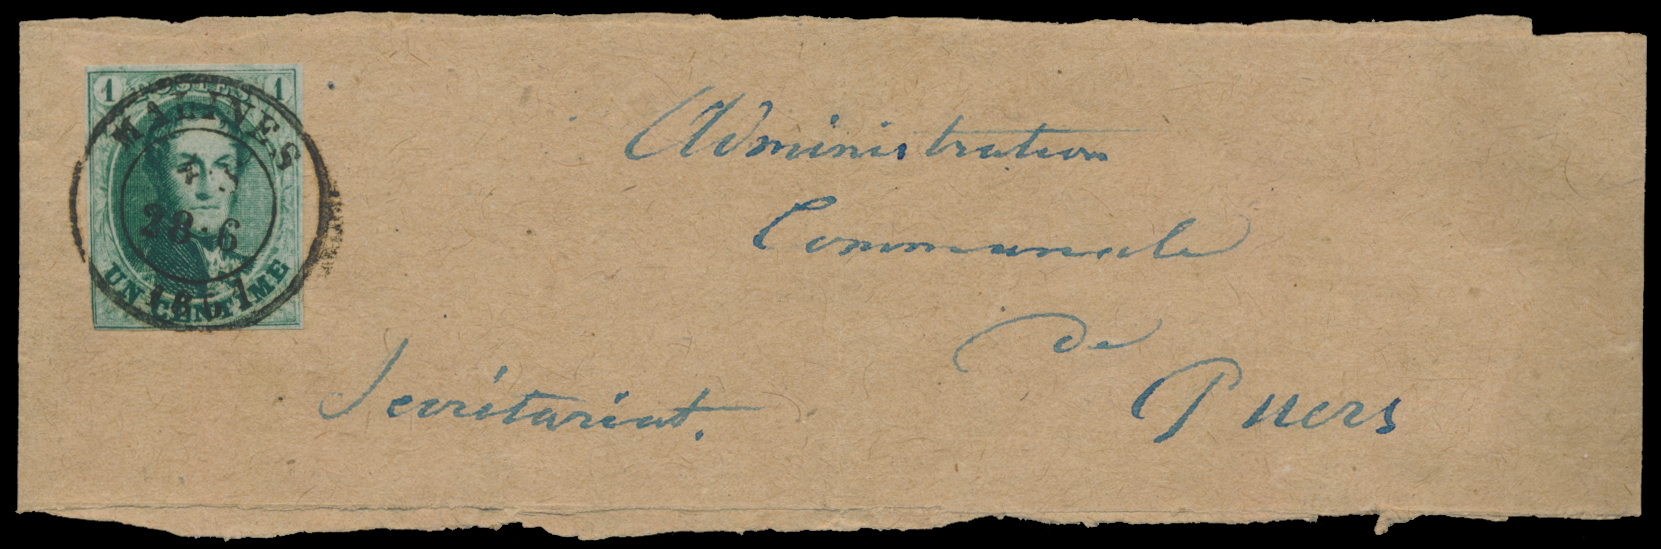 1 POSTES 1
MALINES
28 · 6
UN CENTIME
Administration
Communale
de
Puers
Secrétariat.